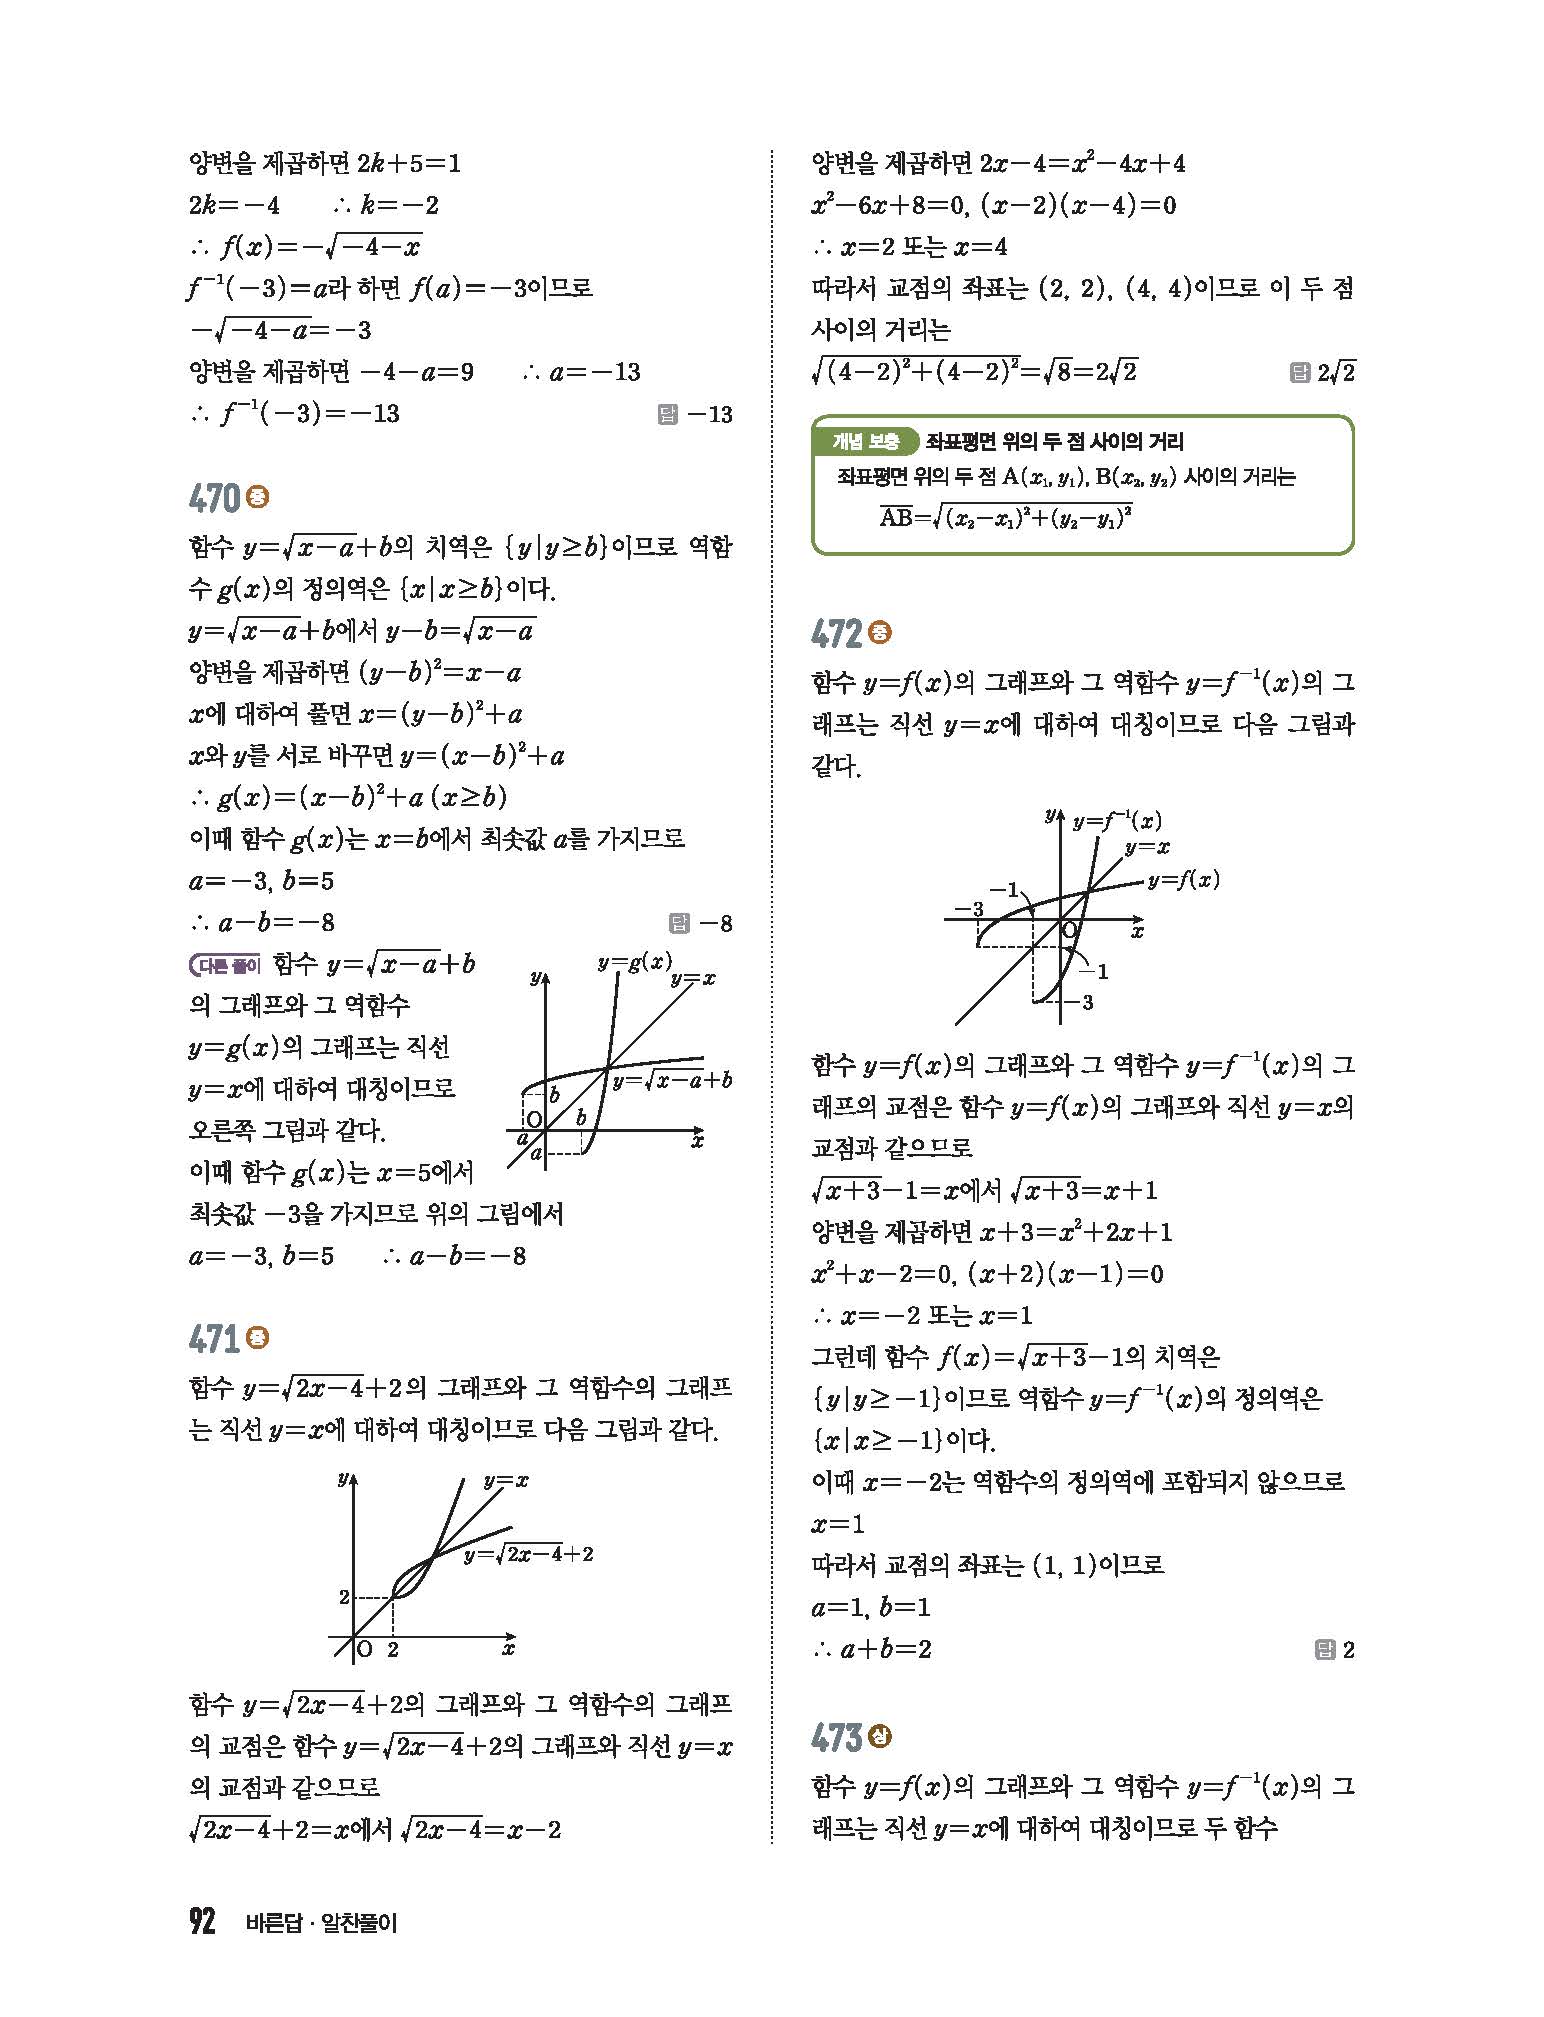 양변을 제곱하면 2k+5=1
2k=-4  ∴ k=-2
∴ f(x)=-√(-4-x)
f⁻¹(-3)=a라 하면 f(a)=-3이므로
-√(-4-a)=-3
양변을 제곱하면 -4-a=9  ∴ a=-13
∴ f⁻¹(-3)=-13  답 -13
470 중
함수 y=√(x-a)+b의 치역은 {y|y≥b}이므로 역함
수 g(x)의 정의역은 {x|x≥b}이다.
y=√(x-a)+b에서 y-b=√(x-a)
양변을 제곱하면 (y-b)²=x-a
x에 대하여 풀면 x=(y-b)²+a
x와 y를 서로 바꾸면 y=(x-b)²+a
∴ g(x)=(x-b)²+a (x≥b)
이때 함수 g(x)는 x=b에서 최솟값 a를 가지므로
a=-3, b=5
∴ a-b=-8  답 -8
다른 풀이 함수 y=√(x-a)+b
의 그래프와 그 역함수
y=g(x)의 그래프는 직선
y=x에 대하여 대칭이므로
오른쪽 그림과 같다.
이때 함수 g(x)는 x=5에서
최솟값 -3을 가지므로 위의 그림에서
a=-3, b=5  ∴ a-b=-8
y
y=g(x)
y=x
y=√(x-a)+b
b
O
b
a
a
x
471 중
함수 y=√(2x-4)+2의 그래프와 그 역함수의 그래프
는 직선 y=x에 대하여 대칭이므로 다음 그림과 같다.
y
y=x
y=√(2x-4)+2
2
O
2
x
함수 y=√(2x-4)+2의 그래프와 그 역함수의 그래프
의 교점은 함수 y=√(2x-4)+2의 그래프와 직선 y=x
의 교점과 같으므로
√(2x-4)+2=x에서 √(2x-4)=x-2
양변을 제곱하면 2x-4=x²-4x+4
x²-6x+8=0, (x-2)(x-4)=0
∴ x=2 또는 x=4
따라서 교점의 좌표는 (2, 2), (4, 4)이므로 이 두 점
사이의 거리는
√((4-2)²+(4-2)²)=√8=2√2  답 2√2
개념 보충 좌표평면 위의 두 점 사이의 거리
좌표평면 위의 두 점 A(x₁, y₁), B(x₂, y₂) 사이의 거리는
A̅B̅=√((x₂-x₁)²+(y₂-y₁)²)
472 중
함수 y=f(x)의 그래프와 그 역함수 y=f⁻¹(x)의 그
래프는 직선 y=x에 대하여 대칭이므로 다음 그림과
같다.
y
y=f⁻¹(x)
y=x
y=f(x)
-1
-3
O
x
-1
-3
함수 y=f(x)의 그래프와 그 역함수 y=f⁻¹(x)의 그
래프의 교점은 함수 y=f(x)의 그래프와 직선 y=x의
교점과 같으므로
√(x+3)-1=x에서 √(x+3)=x+1
양변을 제곱하면 x+3=x²+2x+1
x²+x-2=0, (x+2)(x-1)=0
∴ x=-2 또는 x=1
그런데 함수 f(x)=√(x+3)-1의 치역은
{y|y≥-1}이므로 역함수 y=f⁻¹(x)의 정의역은
{x|x≥-1}이다.
이때 x=-2는 역함수의 정의역에 포함되지 않으므로
x=1
따라서 교점의 좌표는 (1, 1)이므로
a=1, b=1
∴ a+b=2  답 2
473 상
함수 y=f(x)의 그래프와 그 역함수 y=f⁻¹(x)의 그
래프는 직선 y=x에 대하여 대칭이므로 두 함수
92 바른답 · 알찬풀이